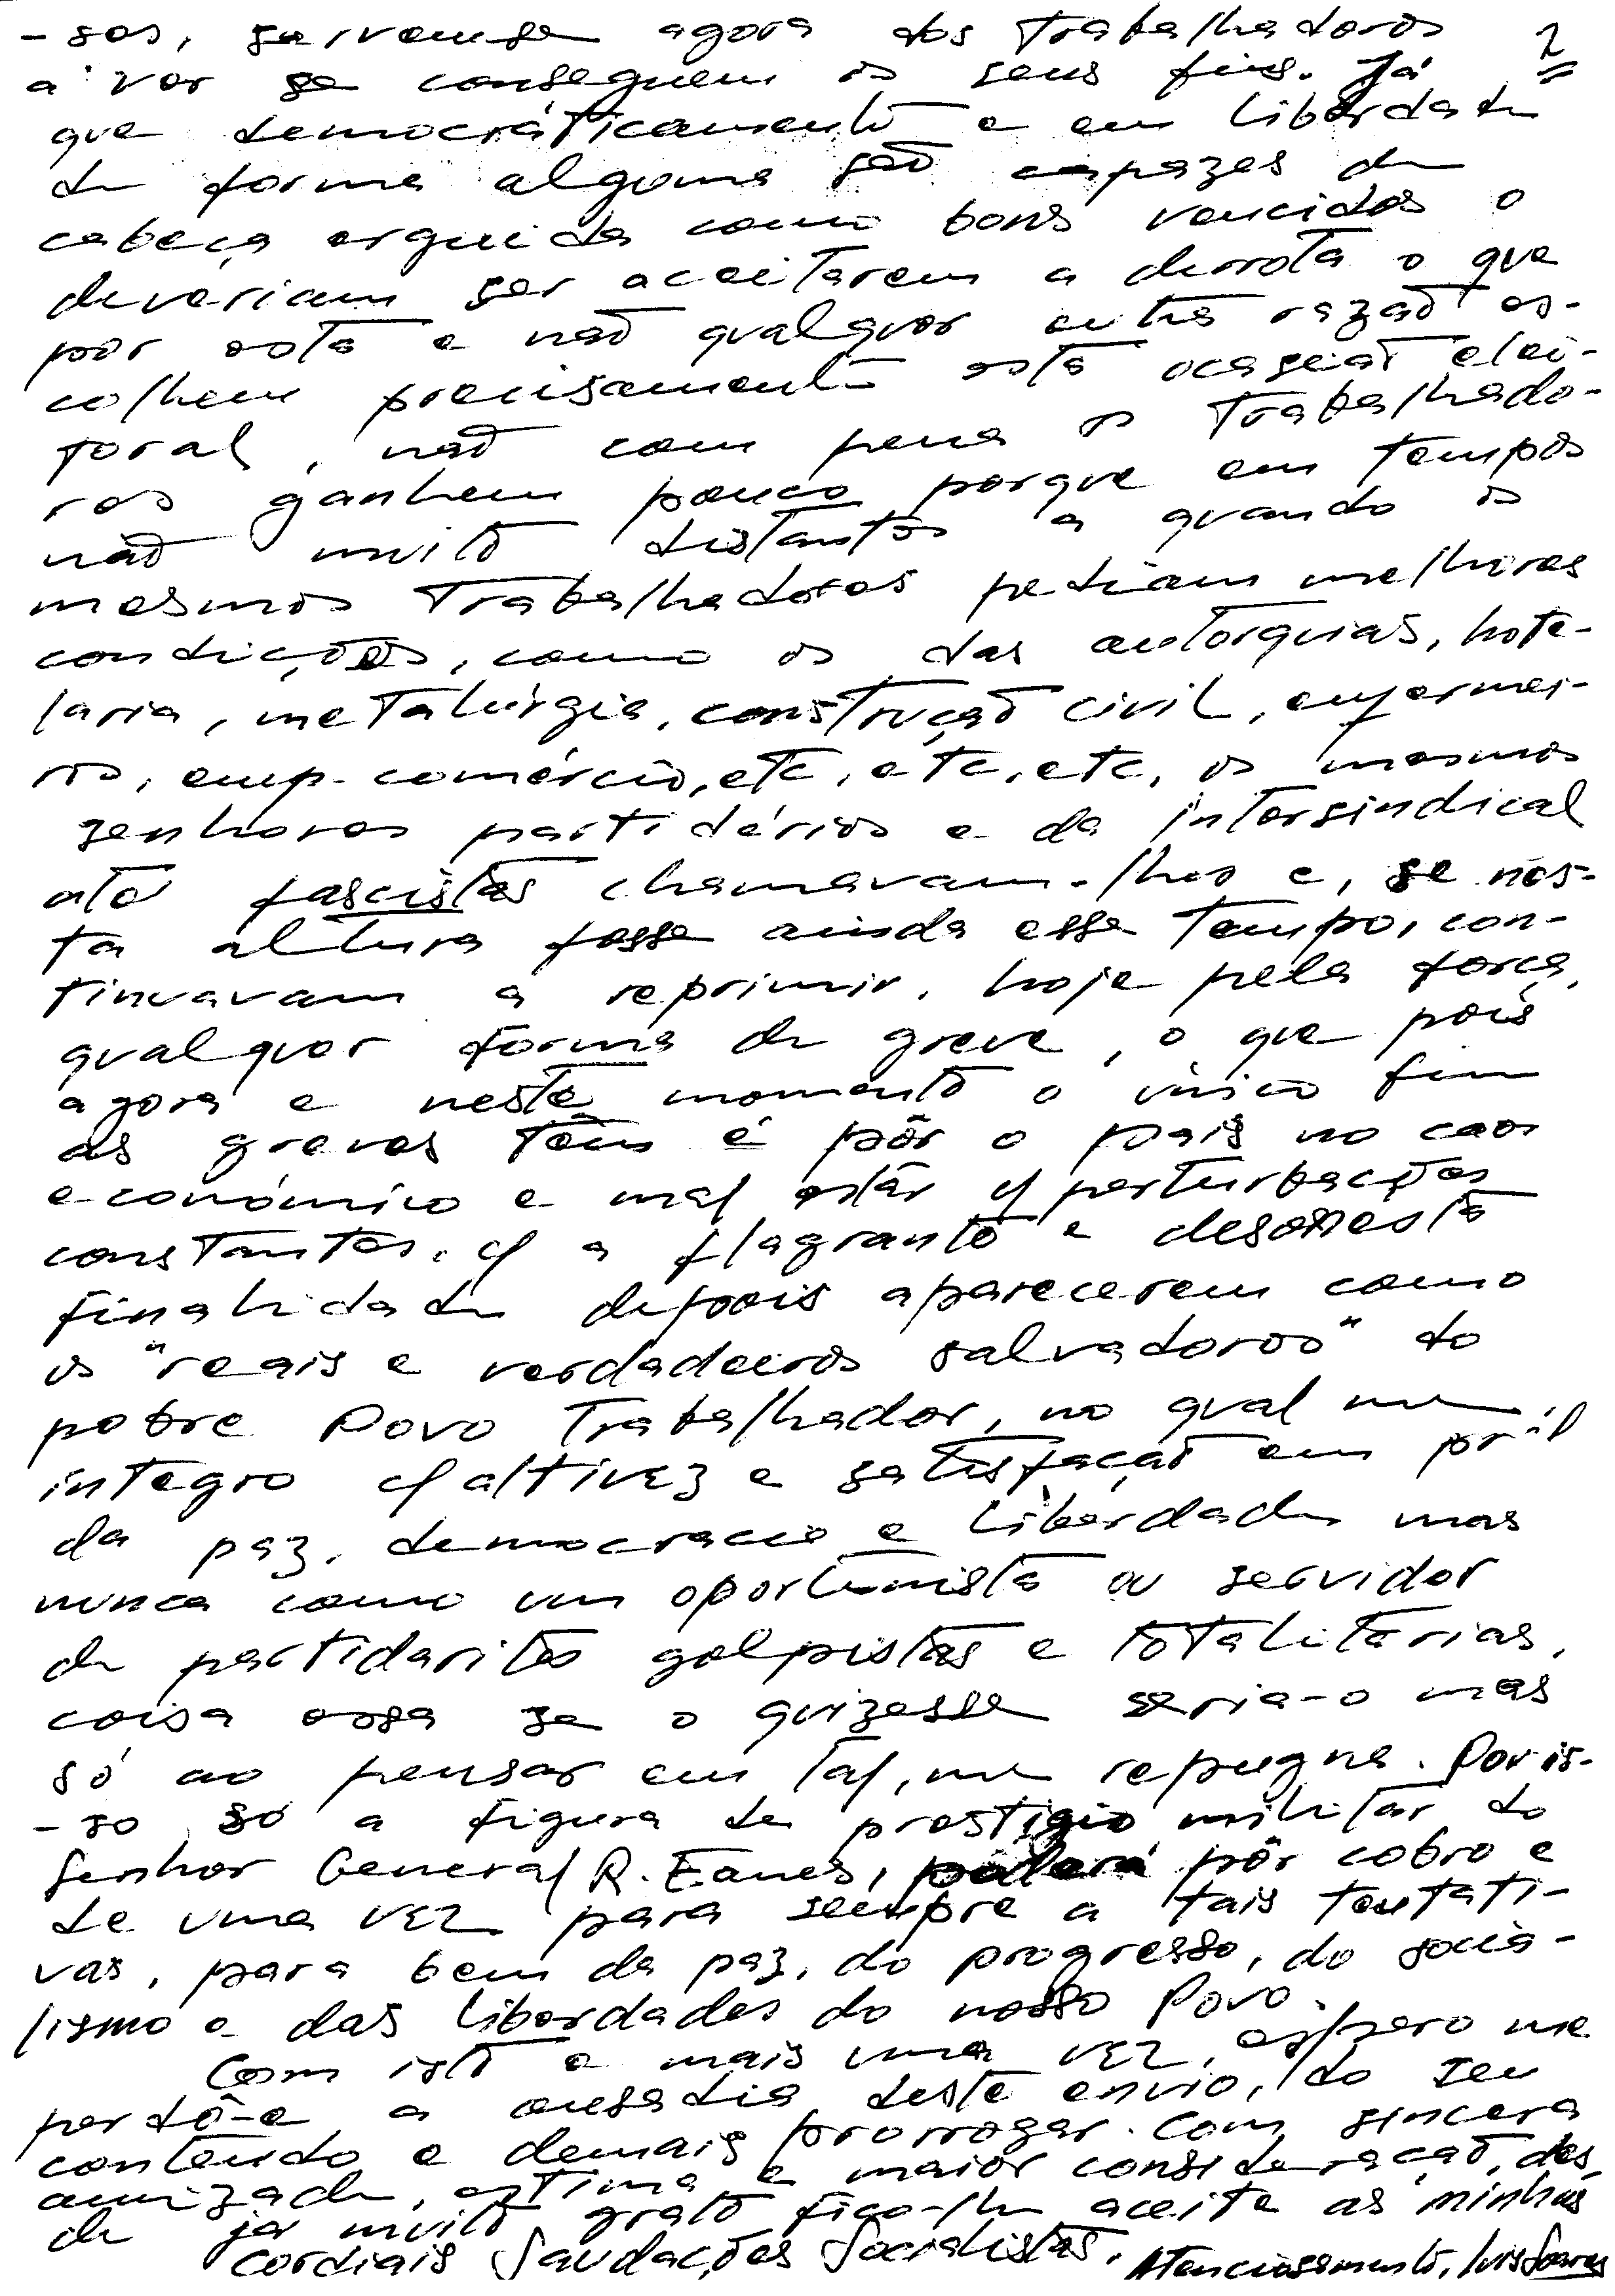 -sos, servem-se agora dos Trabalhadores 2
a ver se conseguem os seus fins. Já
que democráticamente e em liberdade
de forma alguma são capazes de
cabeça erguida como bons vencidos o
deveriam ser aceitarem a derrota o que
por esta e não qualquer outra razão es-
colhem precisamente esta ocasião elei-
toral, não com pena os Trabalhado-
res ganhem pouco porque em tempos
não muito distantes a quando os
mesmos Trabalhadores pediam melhores
condições, como os das autorquias, hote-
laria, metalúrgia, construção civil, enfermei-
ros, emp. comércio, etc, etc, etc, os mesmos
senhores partidários e da intersindical
até fascistas chamavam-lhes e, se nes-
ta altura fosse ainda esse tempo, con-
tinuavam a reprimir, hoje pela força,
qualquer forma de greve, o que pois
agora e neste momento o único fim
as greves têm é pôr o pais no caos
económico e mal estár c/ perturbações
constantes. c/ a flagrante e desonesta
finalidade depois aparecerem como
os "reais e verdadeiros salvadores" do
pobre Povo Trabalhador, no qual me
integro c/ altivez e satisfação em pról
da paz, democracia e liberdade mas
nunca como um oportunista ou servidor
de partidarites golpistas e totalitárias,
coisa essa se o quizesse seria-o mas
só ao pensar em tal, me repugna. Por is-
-so só a figura de prestigio militar do
Senhor General R. Eanes, poderá pôr cobro e
de uma vez para sempre a tais tentati-
vas, para bem da paz, do progresso, do socia-
lismo e das liberdades do nosso Povo.
Com isto e mais uma vez, espero me
perdô-e a ousadia deste envio, do seu
conteudo e demais prorrogar. Com sincera
amizade, estima e maior consideração, des
de já muito grato fico-lhe aceite as minhas
cordiais Saudações Socialistas.
Atenciosamente, Luis Soares